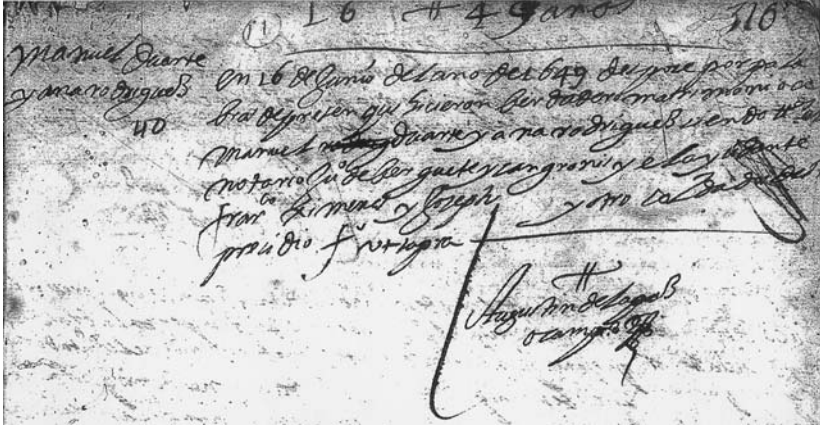 11
16 # 49 año
310
Manuel Duarte
y ana rodrigues
40
en 16 de Junio del año de 1649 despose por pala
bras de presen que hicieron berdadero matrimonio a
manuel duarte y ana rodrigues siendo tos el
notario Juo de berguete y cangronis y el ayudante
franco Ximenes y Joseph y otro
precidio fo ut supra
Augustin de lagos
ocampo